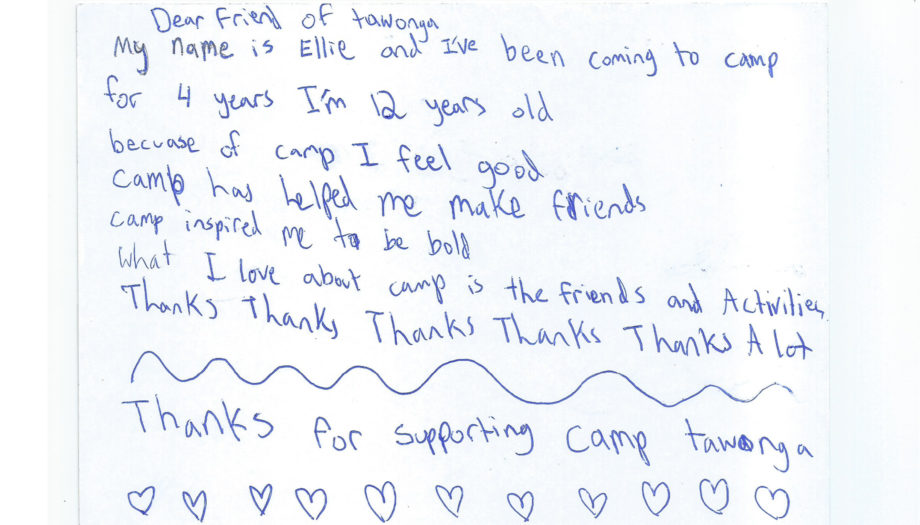 Dear Friend of tawonga
My name is Ellie and I've been coming to camp
for 4 years I'm 12 years old
becuase of camp I feel good
camp has helped me make friends
camp inspired me to be bold
what I love about camp is the friends and Activities
Thanks Thanks Thanks Thanks Thanks A lot
Thanks for supporting camp tawonga